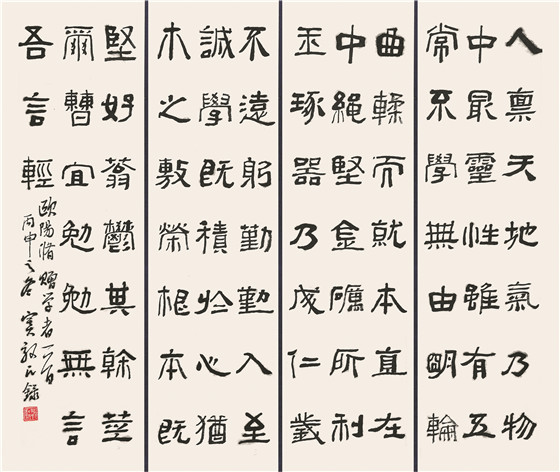 人禀天地氣乃物
中最靈性雖有五
常不學無由朙輪
曲輮而就本直在
中繩堅金礪所利
玉琢器乃成仁義
不遠躬勤勤入至
誠學既積於心猶
木之敷榮根本既
堅好蓊鬱其榦莖
爾曹宜勉勉無言
吾言輕
歐陽脩贈学者一首
丙申之冬